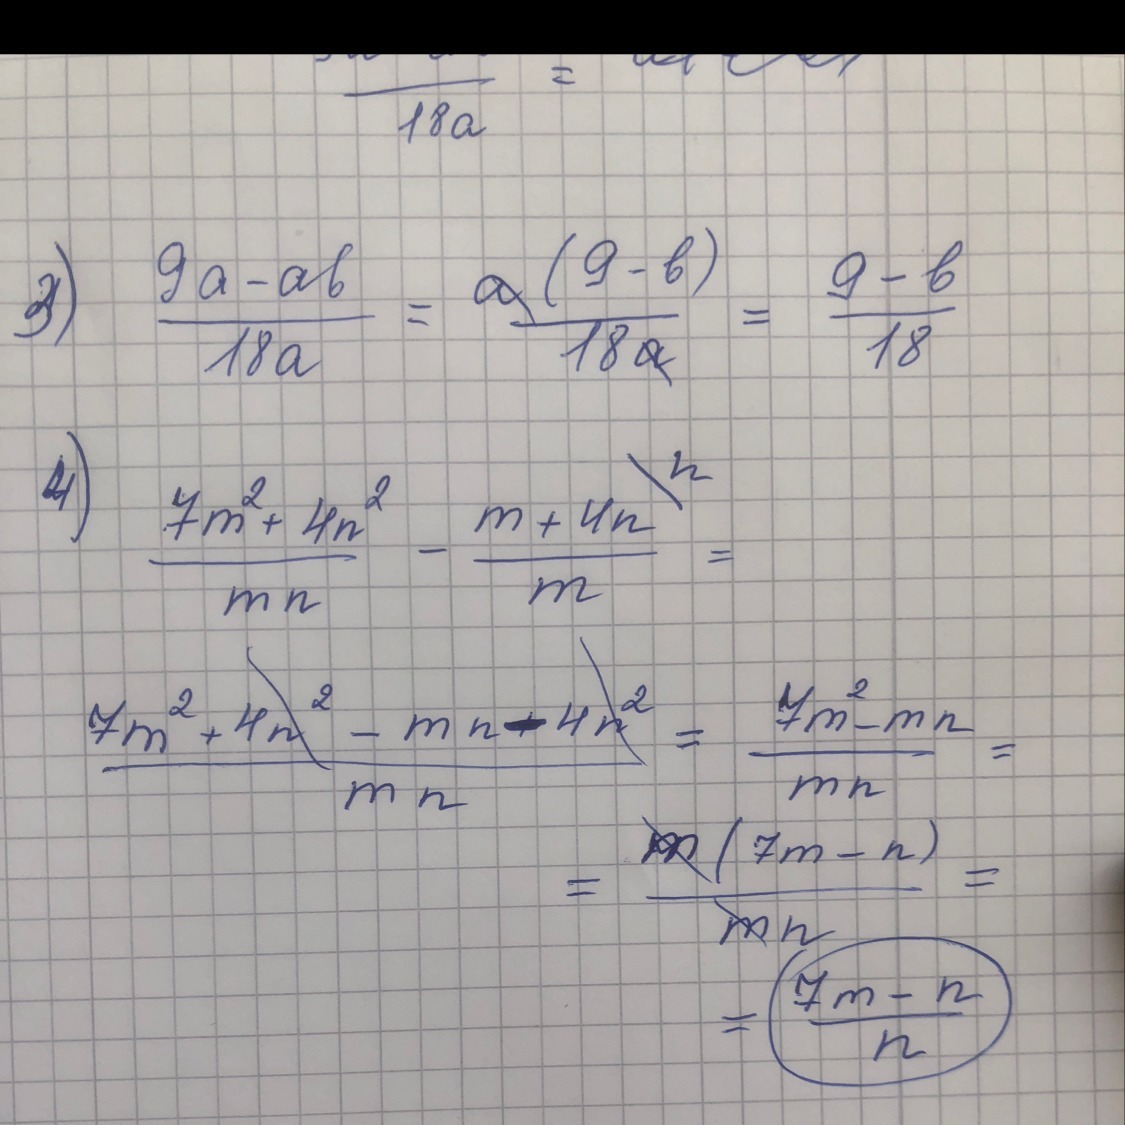 18a =
3) (9a - ab)/(18a) = a(9 - b)/(18a) = (9 - b)/18
4) (7m² + 4n²)/(mn) - (m + 4n)/m \n =
(7m² + 4n² - mn - 4n²)/(mn) = (7m² - mn)/(mn) =
= m(7m - n)/(mn) =
= (7m - n)/n